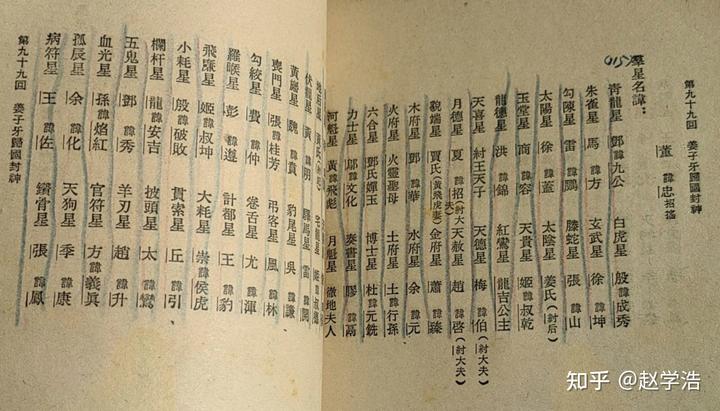 第九十九回 姜子牙歸國封神
董 諱忠 招搖
羣星名諱：
青龍星 鄧諱九公 白虎星 殷諱成秀
朱雀星 馬諱方 玄武星 徐諱坤
勾陳星 雷諱鵬 螣蛇星 張諱山
太陽星 徐諱蓋 太陰星 姜氏（紂后）
玉堂星 商諱容 天貴星 姬諱叔乾
龍德星 洪諱錦 紅鸞星 龍吉公主
天喜星 紂王天子 天德星 梅諱伯（紂大夫）
月德星 夏諱招（紂大夫） 天赦星 趙諱啓（紂大夫）
貌端星 賈氏（黃飛虎妻） 金府星 蕭諱臻
木府星 鄧諱華 水府星 余諱元
火府星 火靈聖母 土府星 土行孫
六合星 鄧氏嬋玉 博士星 杜諱元銑
力士星 鄔諱文化 奏書星 膠諱鬲
河魁星 黃諱飛彪 月魁星 徹地夫人
伏龍星 黃諱明 驛馬星 雷諱開
黃旛星 魏諱賁 豹尾星 吳諱謙
喪門星 張諱桂芳 弔客星 風諱林
勾絞星 費諱仲 卷舌星 尤諱渾
羅睺星 彭諱遵 計都星 王諱豹
飛廉星 姬諱叔坤 大耗星 崇諱侯虎
小耗星 殷諱破敗 貫索星 丘諱引
欄杆星 龍諱安吉 披頭星 太諱鸞
五鬼星 鄧諱秀 羊刃星 趙諱升
血光星 孫諱焰紅 官符星 方諱義眞
孤辰星 余諱化 天狗星 季諱康
病符星 王諱佐 鑽骨星 張諱鳳
第九十九回 姜子牙歸國封神
知乎 @赵学浩